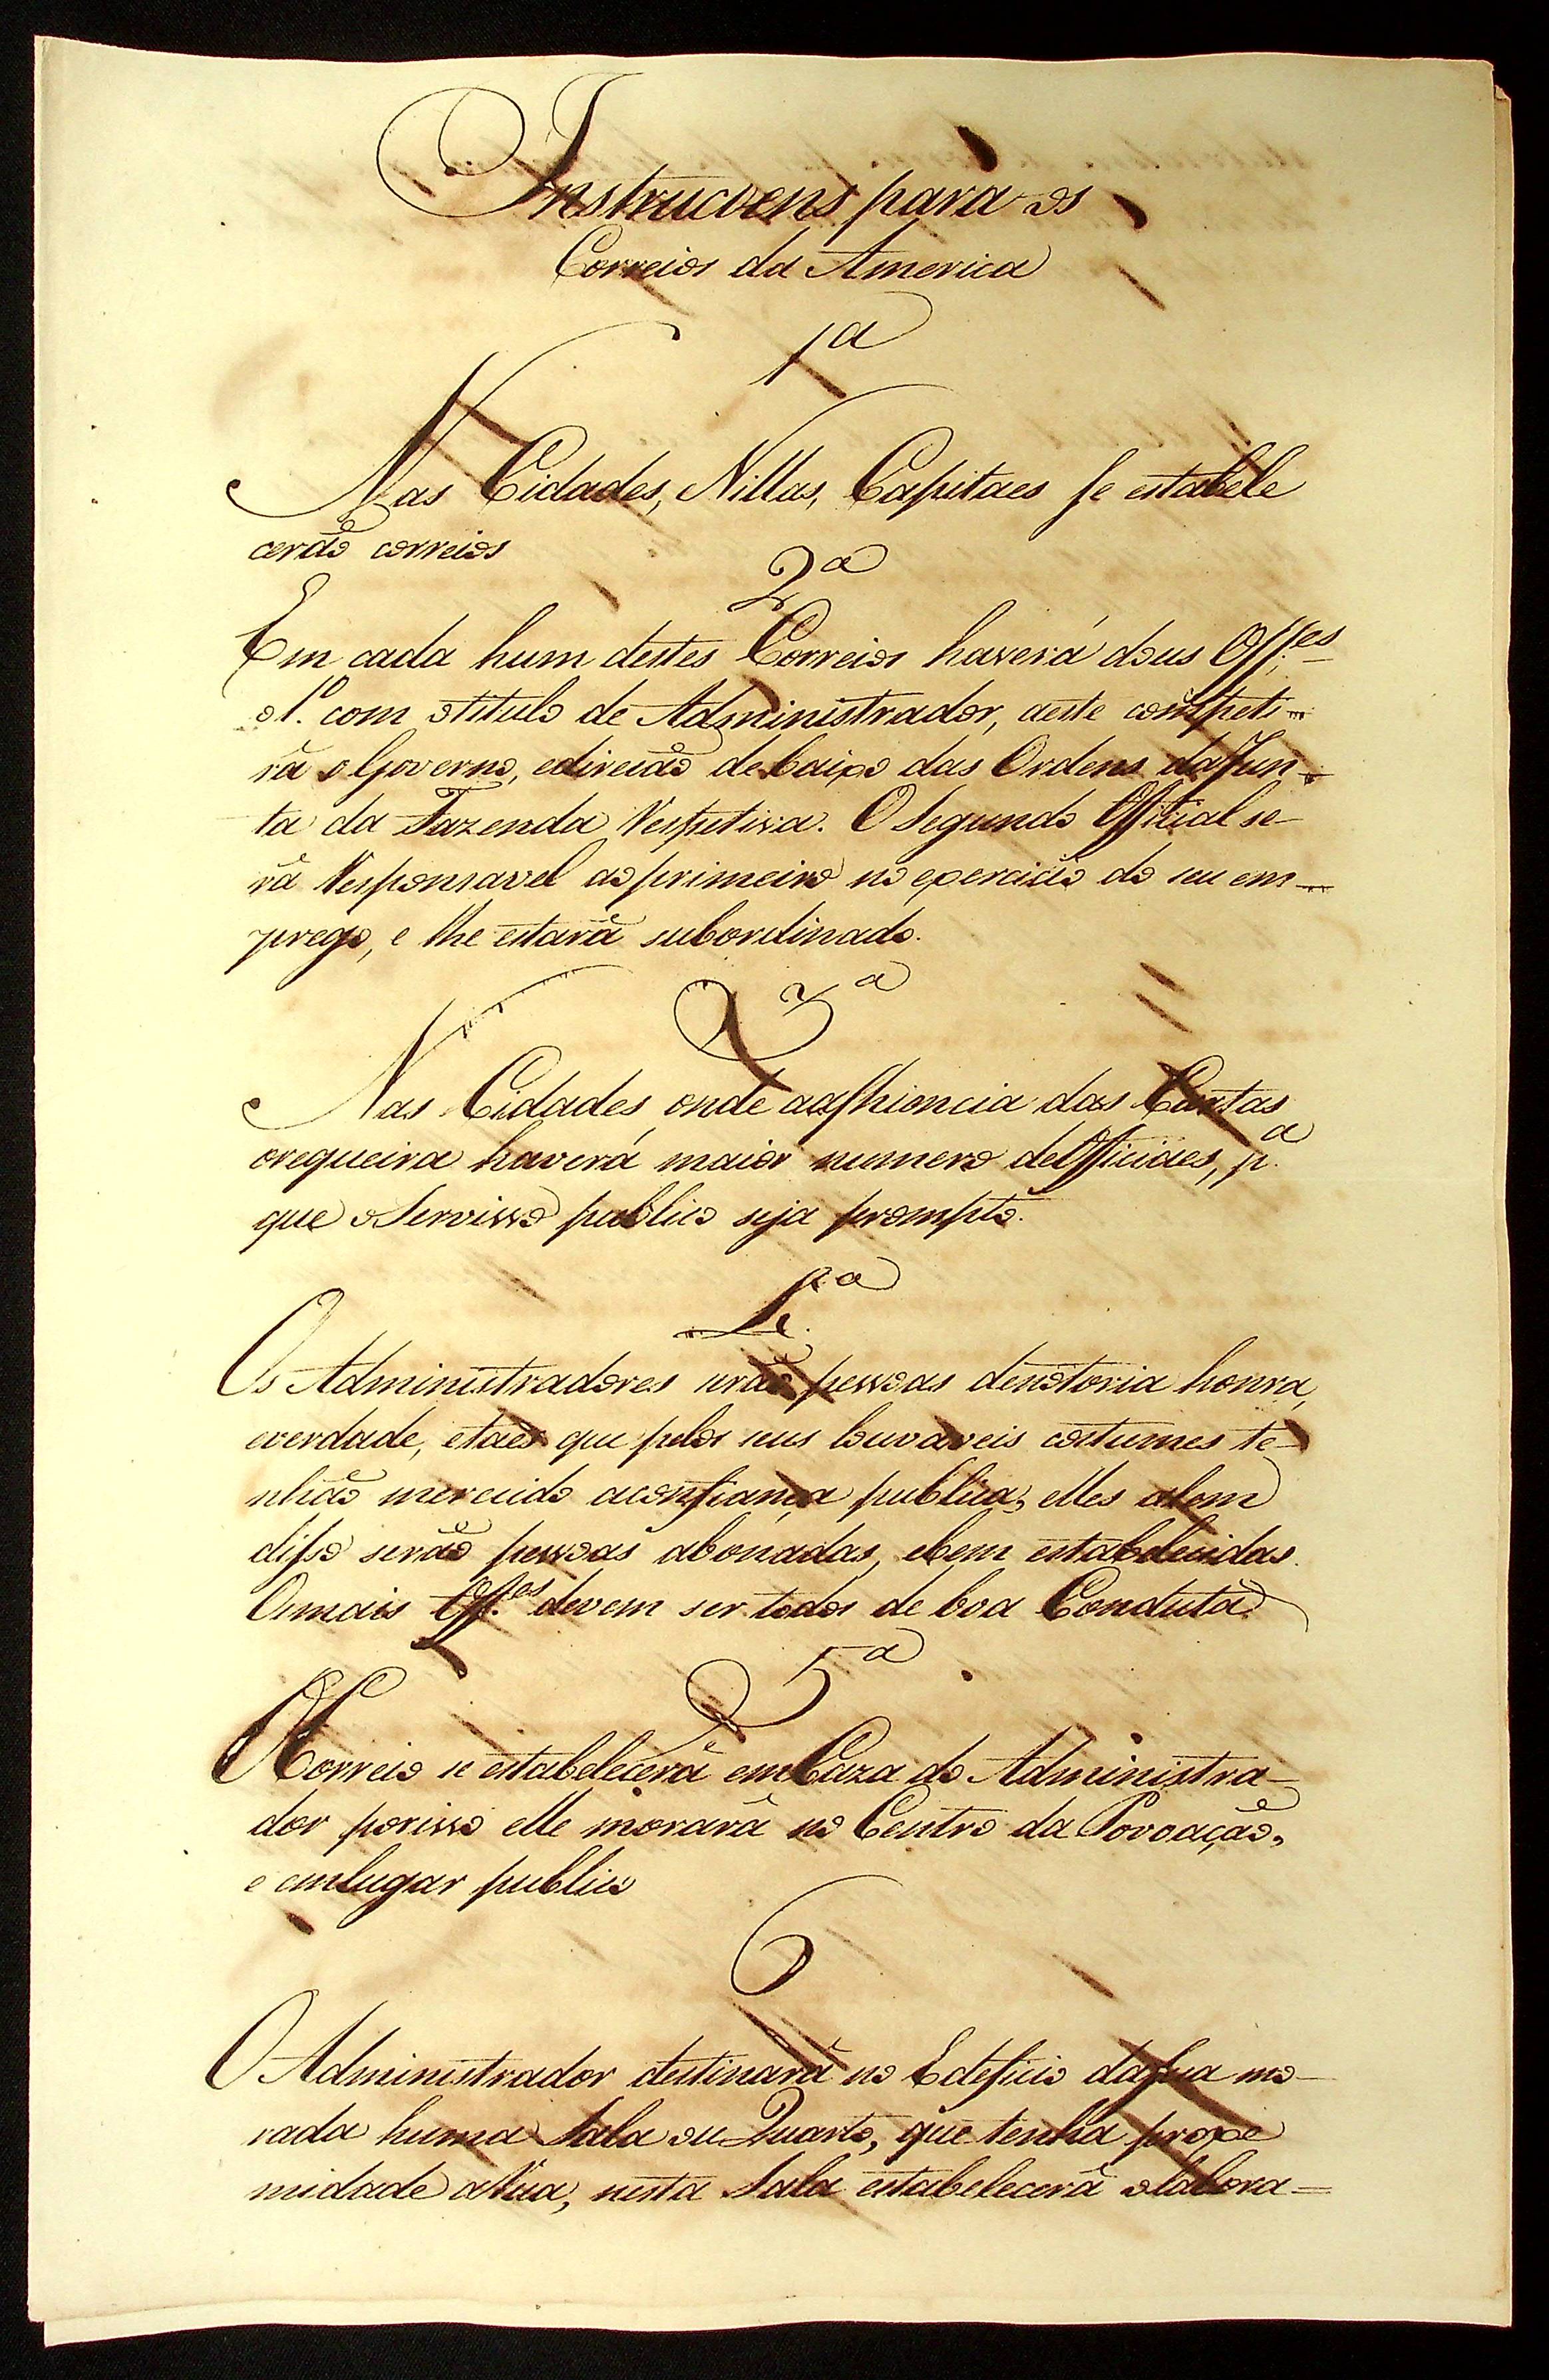 Instrucoens para os
Correios da America
1ª
Nas Cidades, Villas, Capitaes se estabele
cerão correios
2ª
Em cada hum destes Correios haverá dous Off.es
o 1.º com otitulo de Administrador, aeste competi-
rá o Governo, edireção debaixo das Ordens daJun-
ta da Fazenda Respetiva. O Segundo Official se-
rá Responsavel ao primeiro no exercicio do seu em-
prego, e lhe estará subordinado.
3ª
Nas Cidades onde aafluencia das Cartas
orequeira haverá maior numero deOfficiaes, p.ª
que oServisso publico seja prompto.
4ª
Os Administradores serão pessoas denotoria honra,
everdade, etaes que pelos seus louvaveis costumes te-
nhão merecido aconfiança publica, elles alem
disso serão pessoas abonadas, ebem estabelecidas.
Osmais Off.es devem ser todos de boa Conduta
5ª
OCorreio se estabelecerá emCaza do Administra-
dor porisso elle morará no Centro da Povoação,
e emlugar publico
6
O Administrador destinará no Edeficio dasua mo-
rada huma Sala ou Quarto, que tenha proxe
midade aRua, nesta Sala estabelecerá olabora=